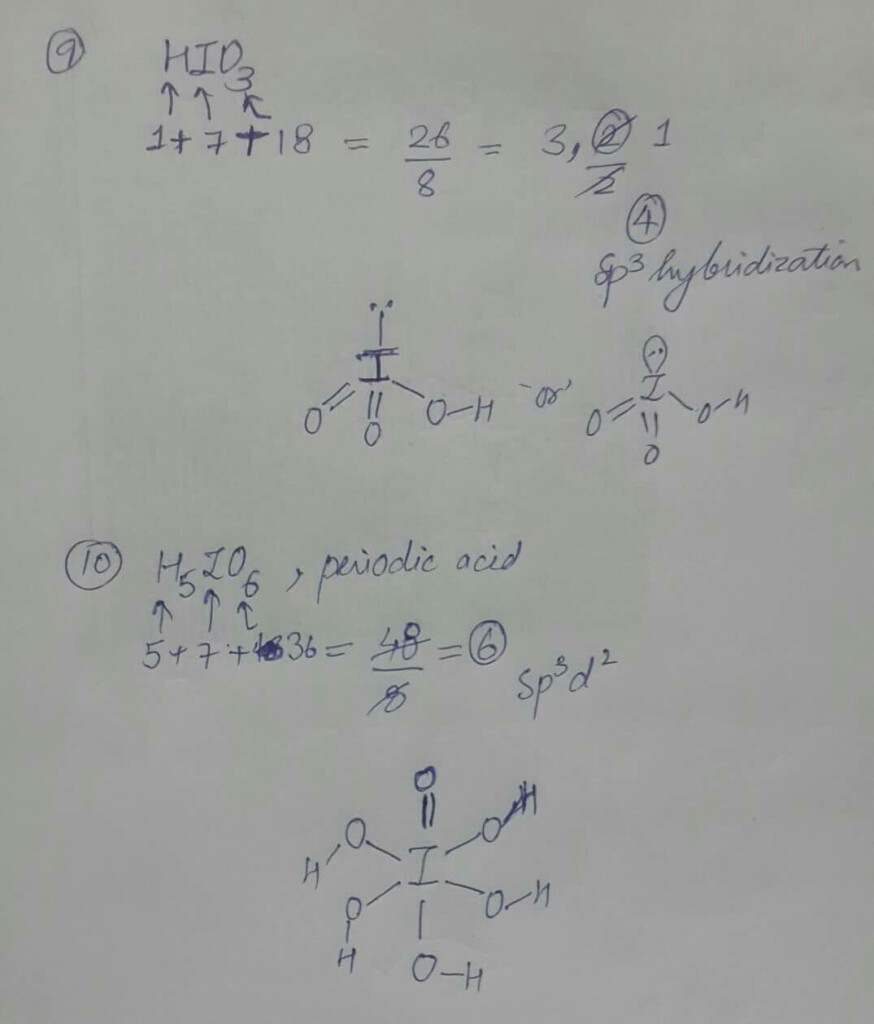 ⑨ HIO₃
↑ ↑ ↖
1 + 7 + 18 = 26/8 = 3, 2/2 1
④
Sp³ hybridization
··
I
O O O-H "or" O I O-H
O
⑩ H₅IO₆, periodic acid
↑ ↑ ↖
5 + 7 + 36 = 48/8 = ⑥ Sp³d²
O
O O H
H I
O O-H
H O-H